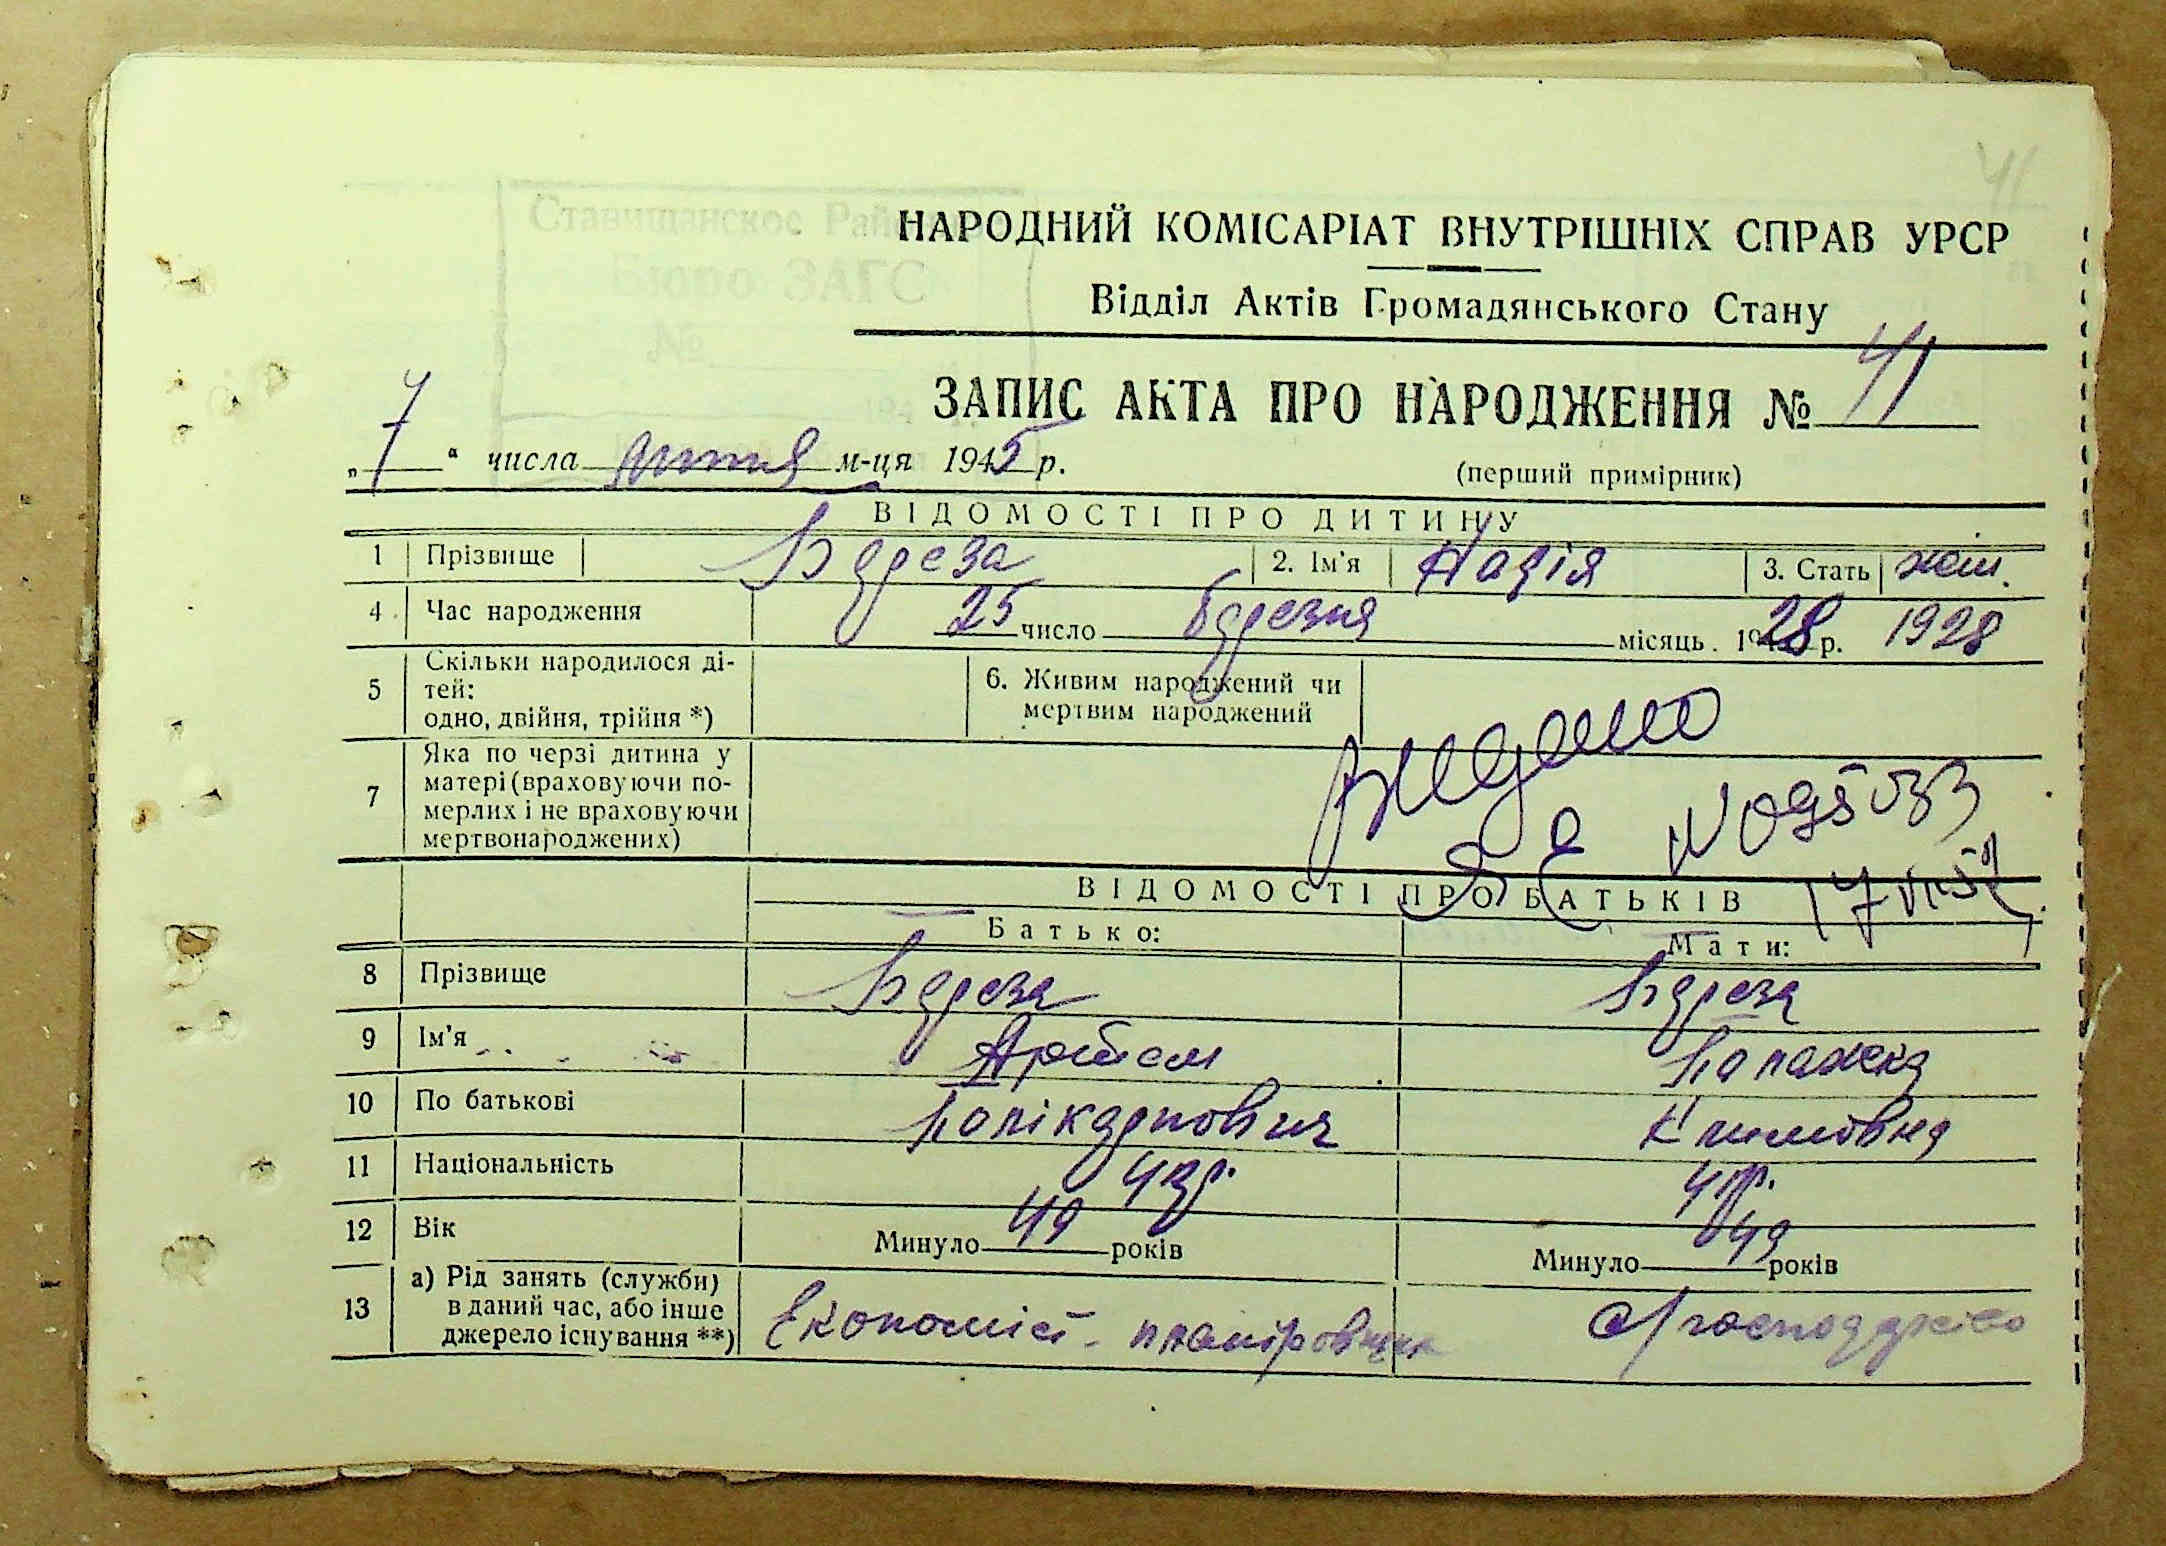 41
НАРОДНИЙ КОМІСАРІАТ ВНУТРІШНІХ СПРАВ УРСР
Відділ Актів Громадянського Стану
ЗАПИС АКТА ПРО НАРОДЖЕННЯ № 41
„7“ числа лютня м-ця 1945 р. (перший примірник)
ВІДОМОСТІ ПРО ДИТИНУ
1 Прізвище Береза 2. Ім'я Надія 3. Стать жін.
4 Час народження 25 число березня місяць 1928 р. 1928
5 Скільки народилося ді-
тей:
одно, двійня, трійня *)
6. Живим народжений чи
мертвим народжений
7 Яка по черзі дитина у
матері (враховуючи по-
мерлих і не враховуючи
мертвонароджених)
Видано
ВІДОМОСТІ ПРО БАТЬКІВ
Батько: Мати:
8 Прізвище Береза Береза
9 Ім'я Артем Палажка
10 По батькові Полікарпович Климовна
11 Національність укр. укр.
12 Вік Минуло 49 років Минуло 49 років
13 а) Рід занять (служби)
в даний час, або інше
джерело існування **)
Економіст - планіровщик
Ставищанское Рай
Бюро ЗАГС
№